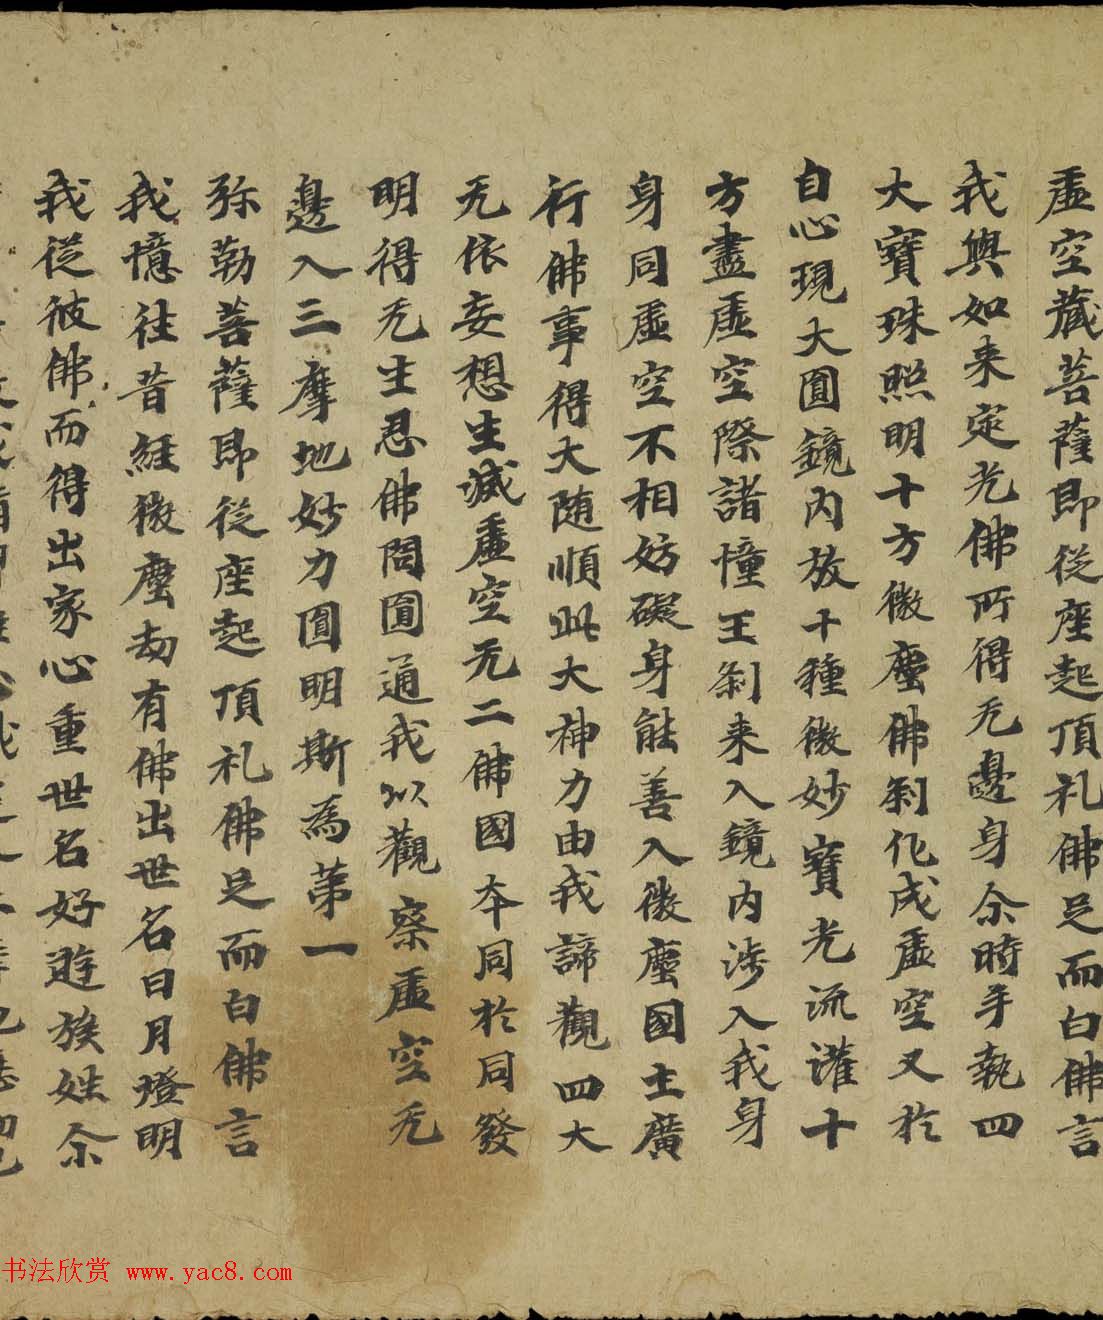 虛空藏菩薩即從座起頂礼佛足而白佛言
我與如来定光佛所得无邊身尒時手執四
大寶珠照明十方微塵佛剎化成虛空又於
自心現大圓鏡内放十種微妙寶光流灌十
方盡虛空際諸幢王剎来入鏡内涉入我身
身同虛空不相妨礙身能善入微塵國土廣
行佛事得大随順此大神力由我諦觀四大
无依妄想生滅虛空无二佛國本同於同發
明得无生忍佛問圓通我以觀察虛空无
邊入三摩地妙力圓明斯為第一
弥勒菩薩即從座起頂礼佛足而白佛言
我憶往昔經微塵劫有佛出世名日月燈明
我從彼佛而得出家心重世名好遊族姓尒
书法欣赏 www.yac8.com